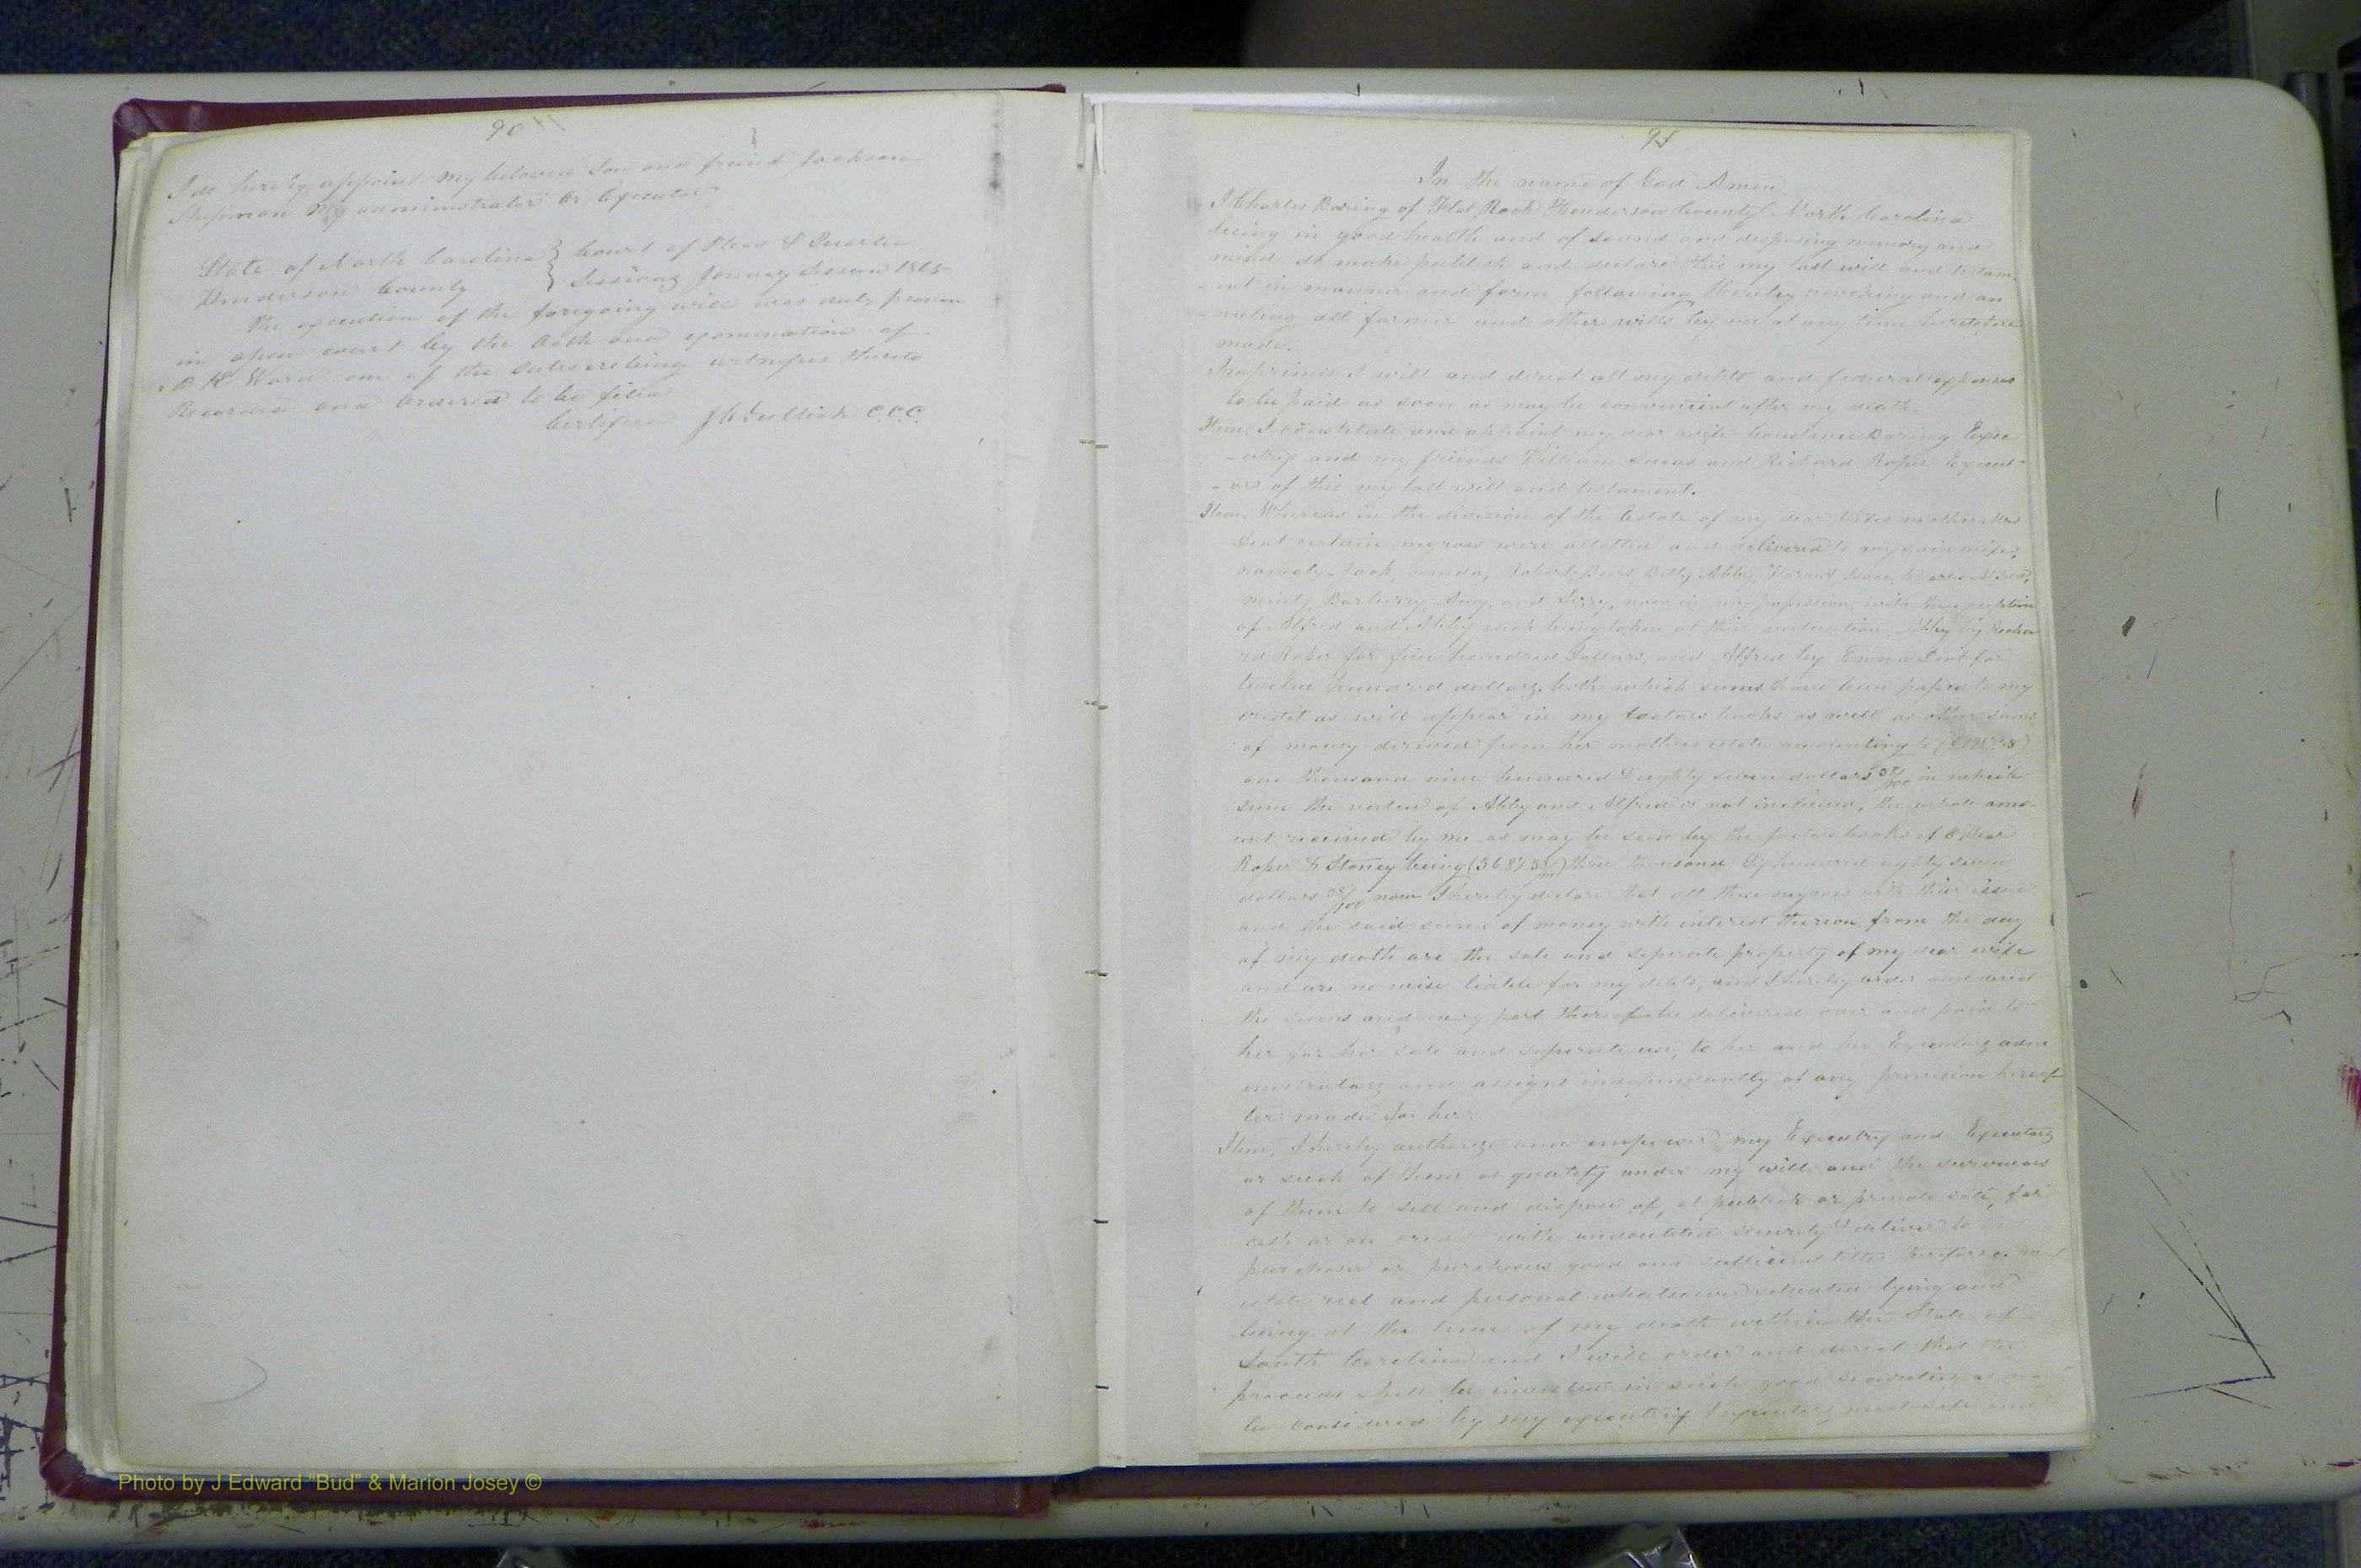 90
I do hereby appoint my beloved Son and freind Jackson
Shipman my administrator or Executor
State of North Carolina } Court of Pleas & Quarter
Henderson County } Sessions January Session 1865
The execution of the foregoing will was duly proven
in open court by the Oath and examination of
B K Ward one of the subscribing witnesses thereto
Recorded and Ordered to be filed
Certified C.C.C.
91
In the name of God Amen
I Charles Baring of Flat Rock Henderson County North Carolina
being in good health and of sound and disposing memory and
mind do make publish and declare this my last will and testam
-ent in manner and form following thereby revoking and an
-nuling all former and other wills by me at any time heretofore
made.
Imprimis I will and direct all my debts and funeral expenses
to be paid as soon as may be convenient after my death.
Item. I constitute and appoint my dear wife Constance Baring Exec
-utrix and my friends William and Richard Roper Execut-
-ors of this my last will and testament.
Item. Whereas in the division of the Estate of my dear Wifes mother Mrs
Dent certain negroes were allotted and delivered to my said wife,
namely Robert, Betty Abby, Harriet Isaac, Charles Alfred,
Barberry, Amy, and now in my possession, with the exception
of Alfred and Abby each being taken at their valuation Abby by Richa
rd Roper for five hundred Dollars, and Alfred by Emma Dent for
twelve hundred dollars. both which sums have been passed to my
credit as will appear in my factors books as well as other sums
of money derived from her mothers estate amounting to
one thousand nine hundred & eighty seven dollars 38/100 in which
sum the value of Abby and Alfred is not included, the whole amo-
unt received by me as may be seen by the factors books of
Roper & Stoney being (3687 38/100) three thousand Six hundred eighty seven
dollars 38/100 now I hereby declare that all these negroes with their issue
and the said sums of money with interest thereon from the day
of my death are the sole and seperate property of my dear wife
and are no wise liable for my debts, and I hereby order and direct
the sums and every part thereof be delivered over and paid to
her for her sole and seperate use, to her and her Executors adm
inistrators and assigns independantly of any provision hereaf
ter made for her.
Item, I hereby authorize and empower my Executrix and Executors
or such of them as qualify under my will and the survivors
of them to sell and dispose of, at publick or private sale, for
cash or on credit with undoubted security & deliver to the
purchaser or purchasers good and sufficient titles therefor
estate real and personal whatsoever situated lying and
being at the time of my death within the State of
South Carolina and I will order and direct that the
proceeds shall be invested in such good securities as may
be considered by my executrix & executors most safe and
Photo by J Edward "Bud" & Marion Josey ©